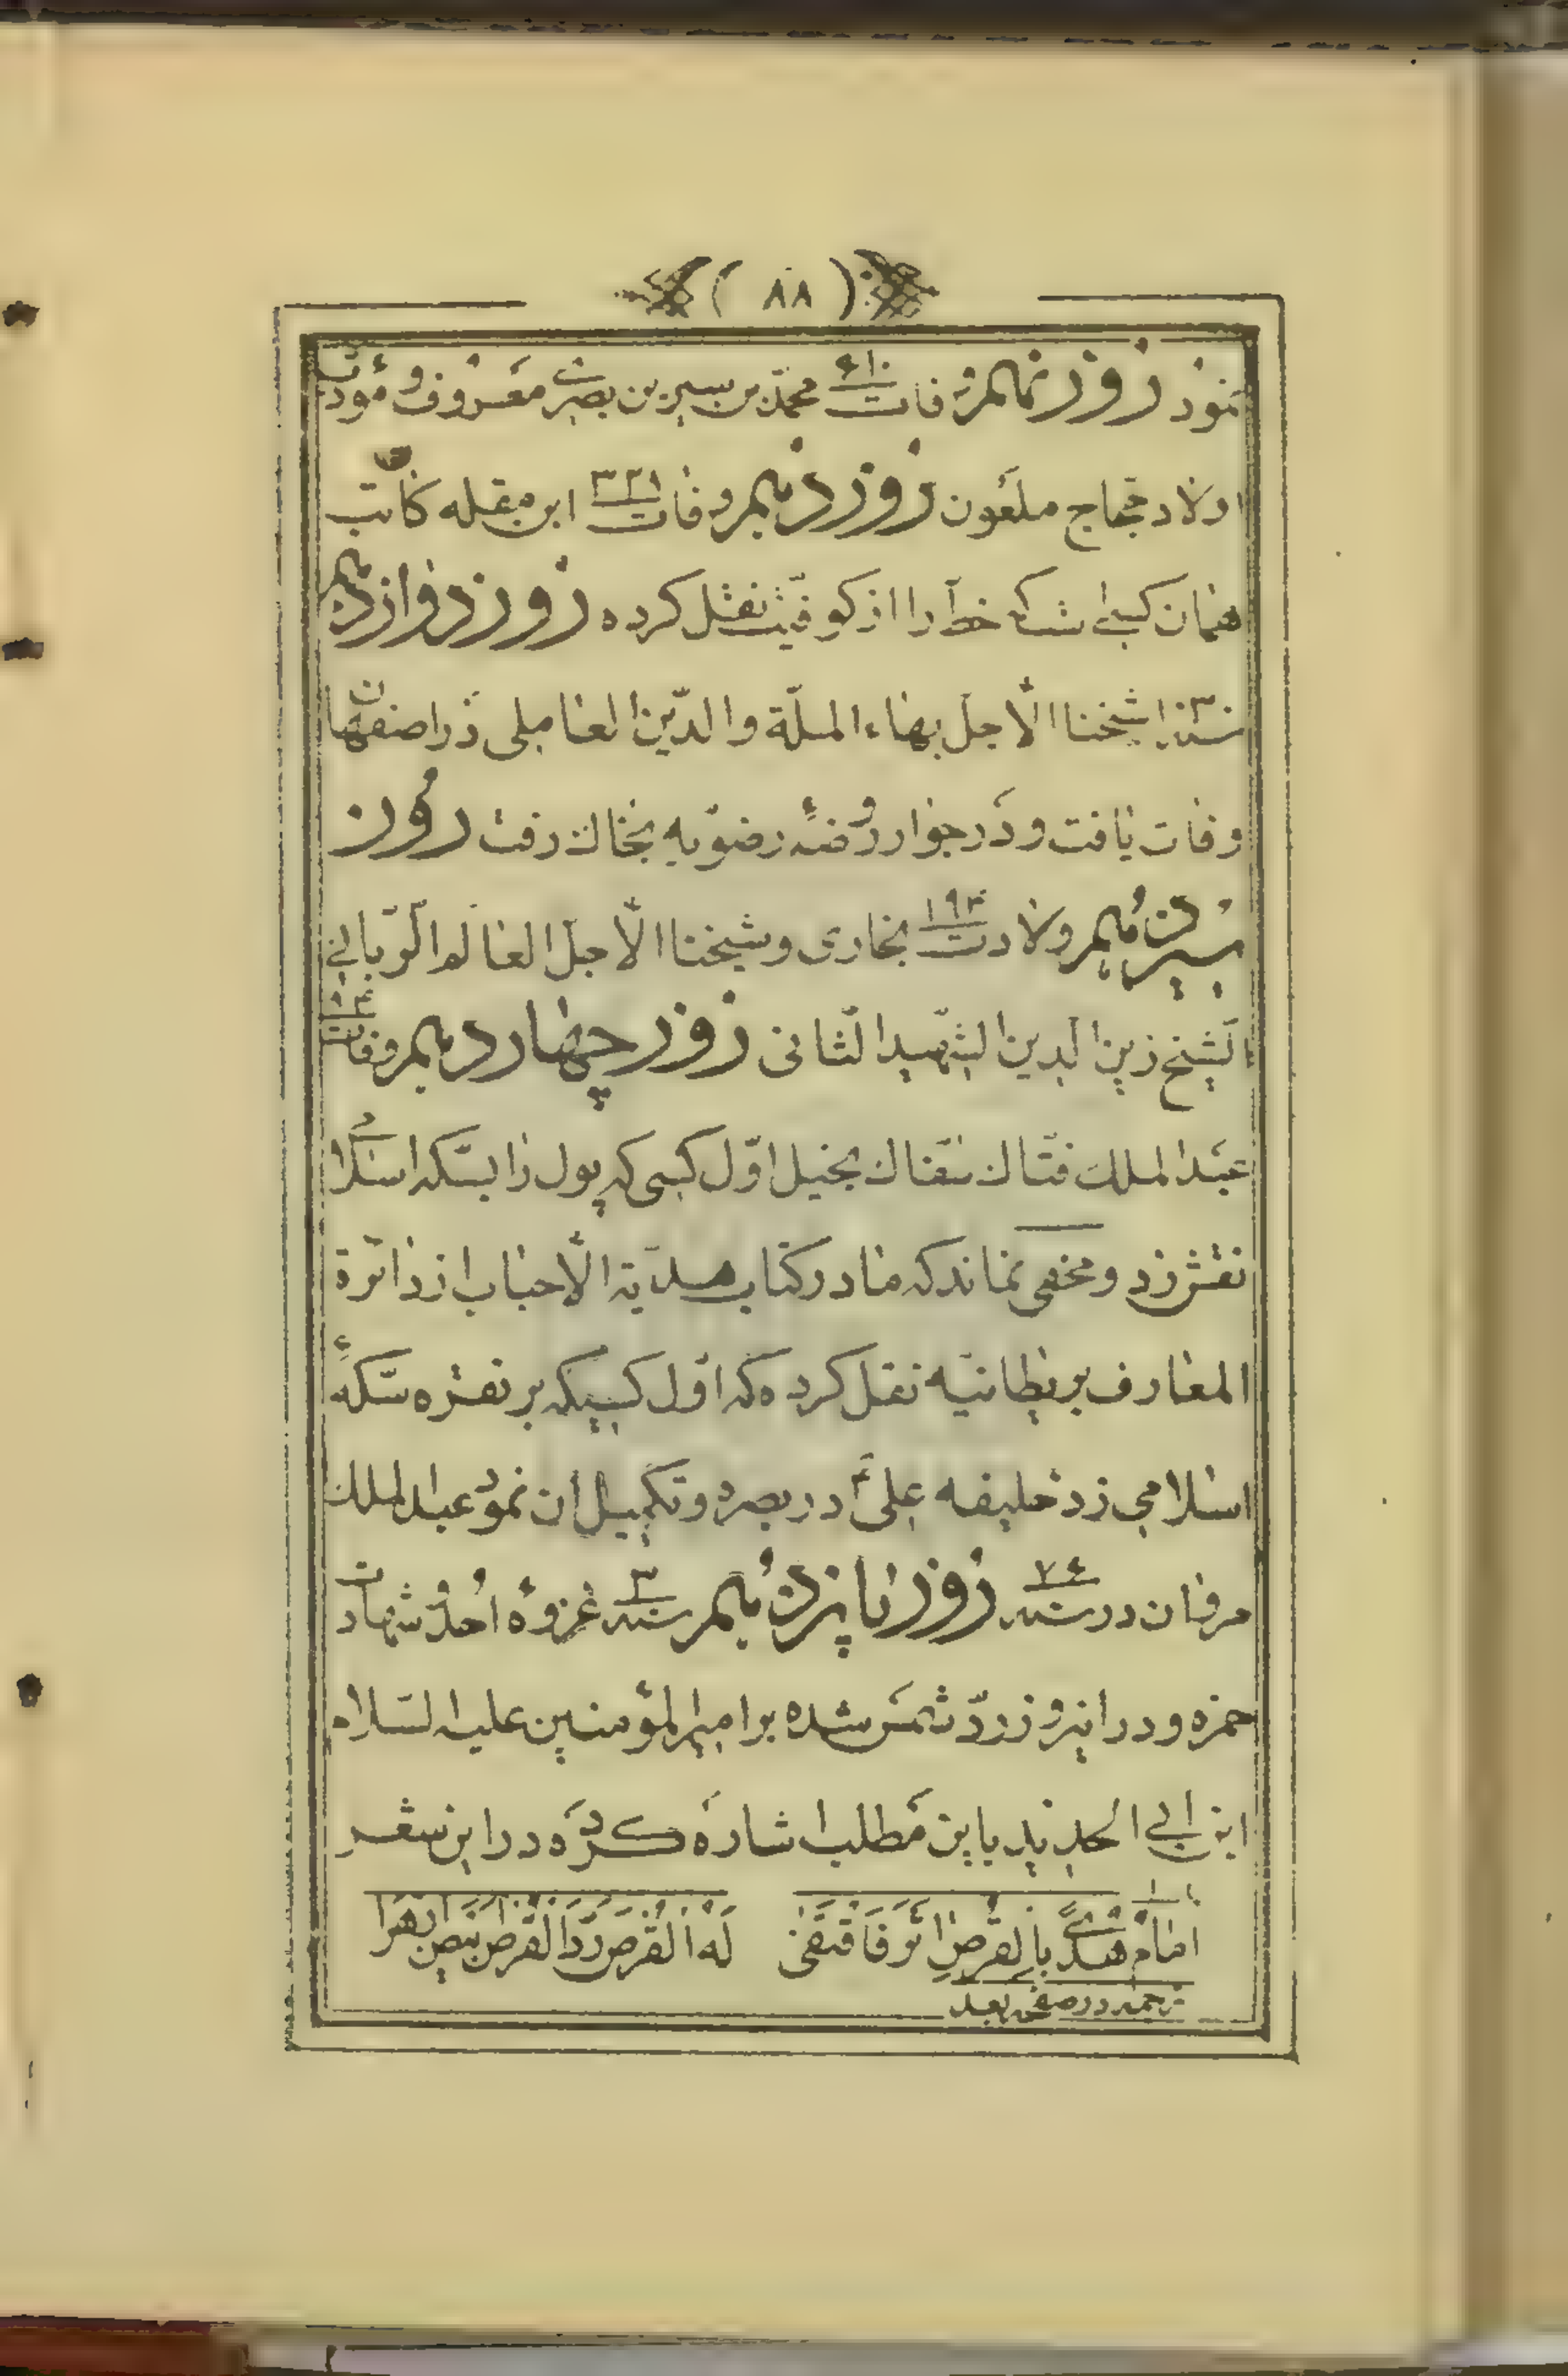 ( ۸۸ )
نمود روز نهم وفات ۱۱۰ محمد بن سیرین بصری معروف و مؤدب
اولاد حجاج ملعون روز دهم وفات ۳۲۸ ابن مقله کاتب
همان کسی است که خط را از کوفیت نقل کرده روز دوازدهم
سنه شیخنا الأجل بهاء الملّة والدّین العاملی در اصفهان
وفات یافت و در جوار روضهٔ رضویه بخاک رفت روز
سیزدهم ولادت ۱۹۴ بخاری و شیخنا الأجل العالم الرّبانی
الشیخ زین الدین الشّهید الثانی روز چهاردهم وفات
عبد الملک فتّاک سفّاک بخیل اوّل کسی که پول را بسکه اسلام
نقش زد و مخفی نماند که ما در کتاب هدیة الأحباب از دائرة
المعارف بریطانیّه نقل کرده که اوّل کسیکه بر نقره سکهٔ
اسلامی زد خلیفه علی ع در بصره و تکمیل آن نمود عبد الملک
مروان در سنه ۷۶ روز پانزدهم سنه ۳ غزوهٔ احد و شهادت
حمزه و در این روز ردّ شمس شده برای امیرالمؤمنین علیه السلام
ابن ابی الحدید باین مطلب اشاره کرده در این شعر
امام هدیً بالقرص آثر فاقتضی له القرص ردّ القرص ابیض ازهرا
ترجمه در صفحه بعد